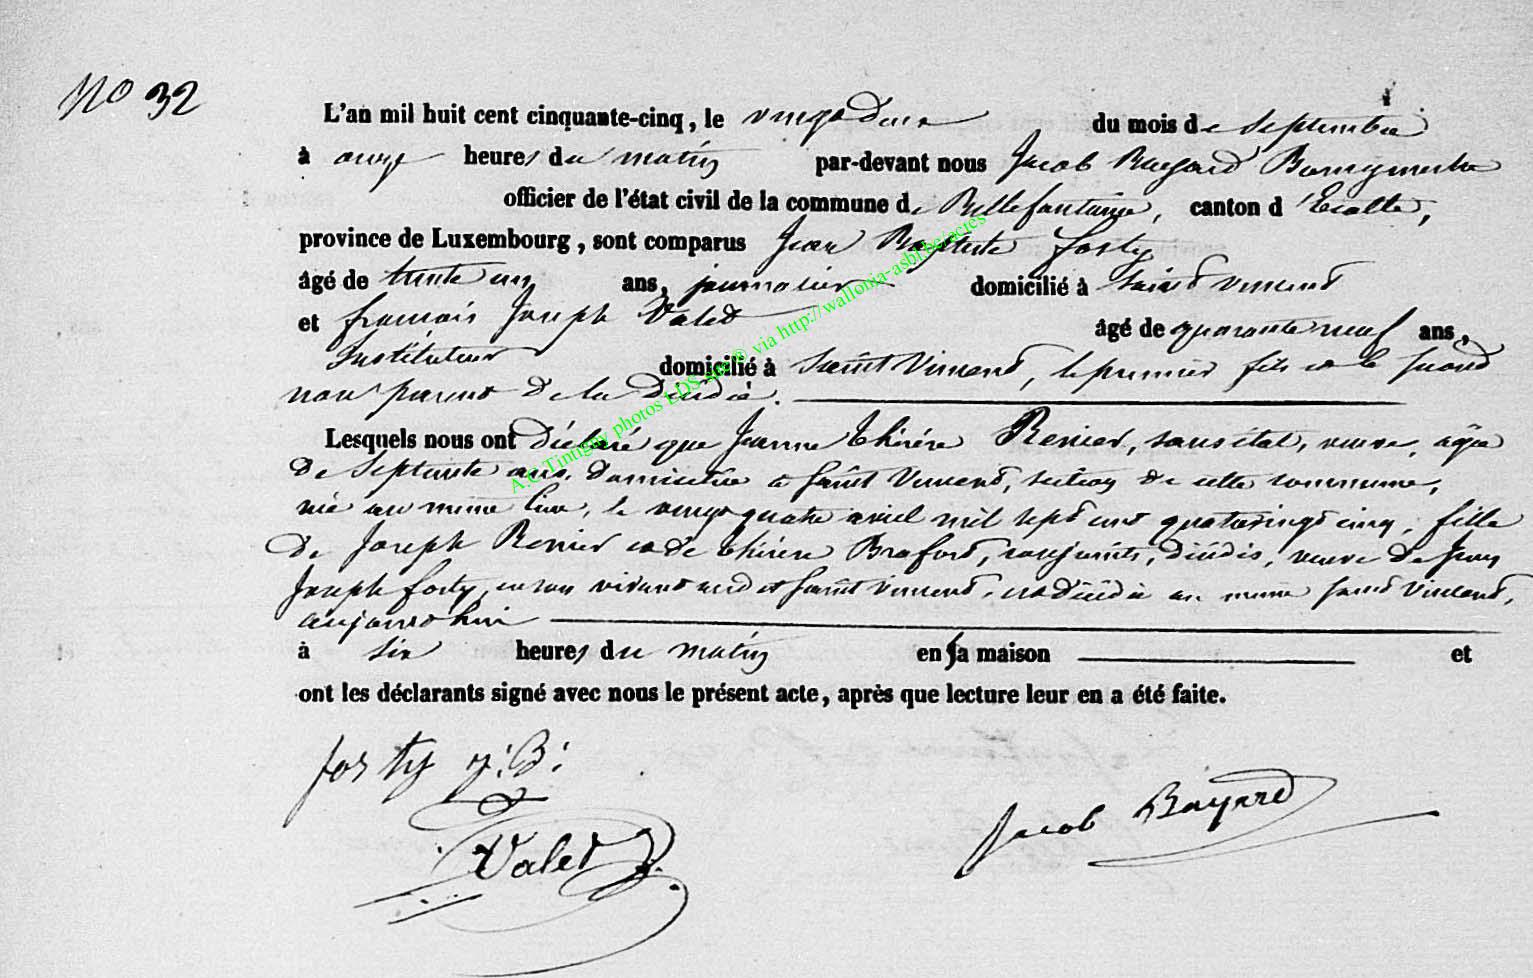 No 32
L'an mil huit cent cinquante-cinq, le vingt deux du mois de Septembre
à onze heures du matin par-devant nous Jacob Bayard Bourgmestre
officier de l'état civil de la commune de Bellefontaine, canton d'Etalle,
province de Luxembourg, sont comparus Jean Baptiste Forty
âgé de trente un ans, journalier domicilié à Saint Vincent
et françois Joseph Valet âgé de quarante neuf ans,
Instituteur domicilié à Saint Vincent, le premier fils et le second
non parent de la décédée.
Lesquels nous ont déclaré que Jeanne thérèse Renier, sans état, veuve, agée
de Septante ans, domiciliée à Saint Vincent, section de cette commune,
née au même lieu, le vingt quatre avril mil sept cent quatrevingt cinq, fille
de Joseph Renier et de thérèse Brafort, conjoints, décédés, veuve de Jean
Joseph forty, en son vivant audit Saint Vincent, est décédée au même Saint Vincent,
aujourd'hui
à six heures du matin en sa maison et
ont les déclarants signé avec nous le présent acte, après que lecture leur en a été faite.
forty J:B:
Jacob Bayard
Valet
A.C Tintigny photos LDS sur ® via http://wallonia-asbl.be/actes